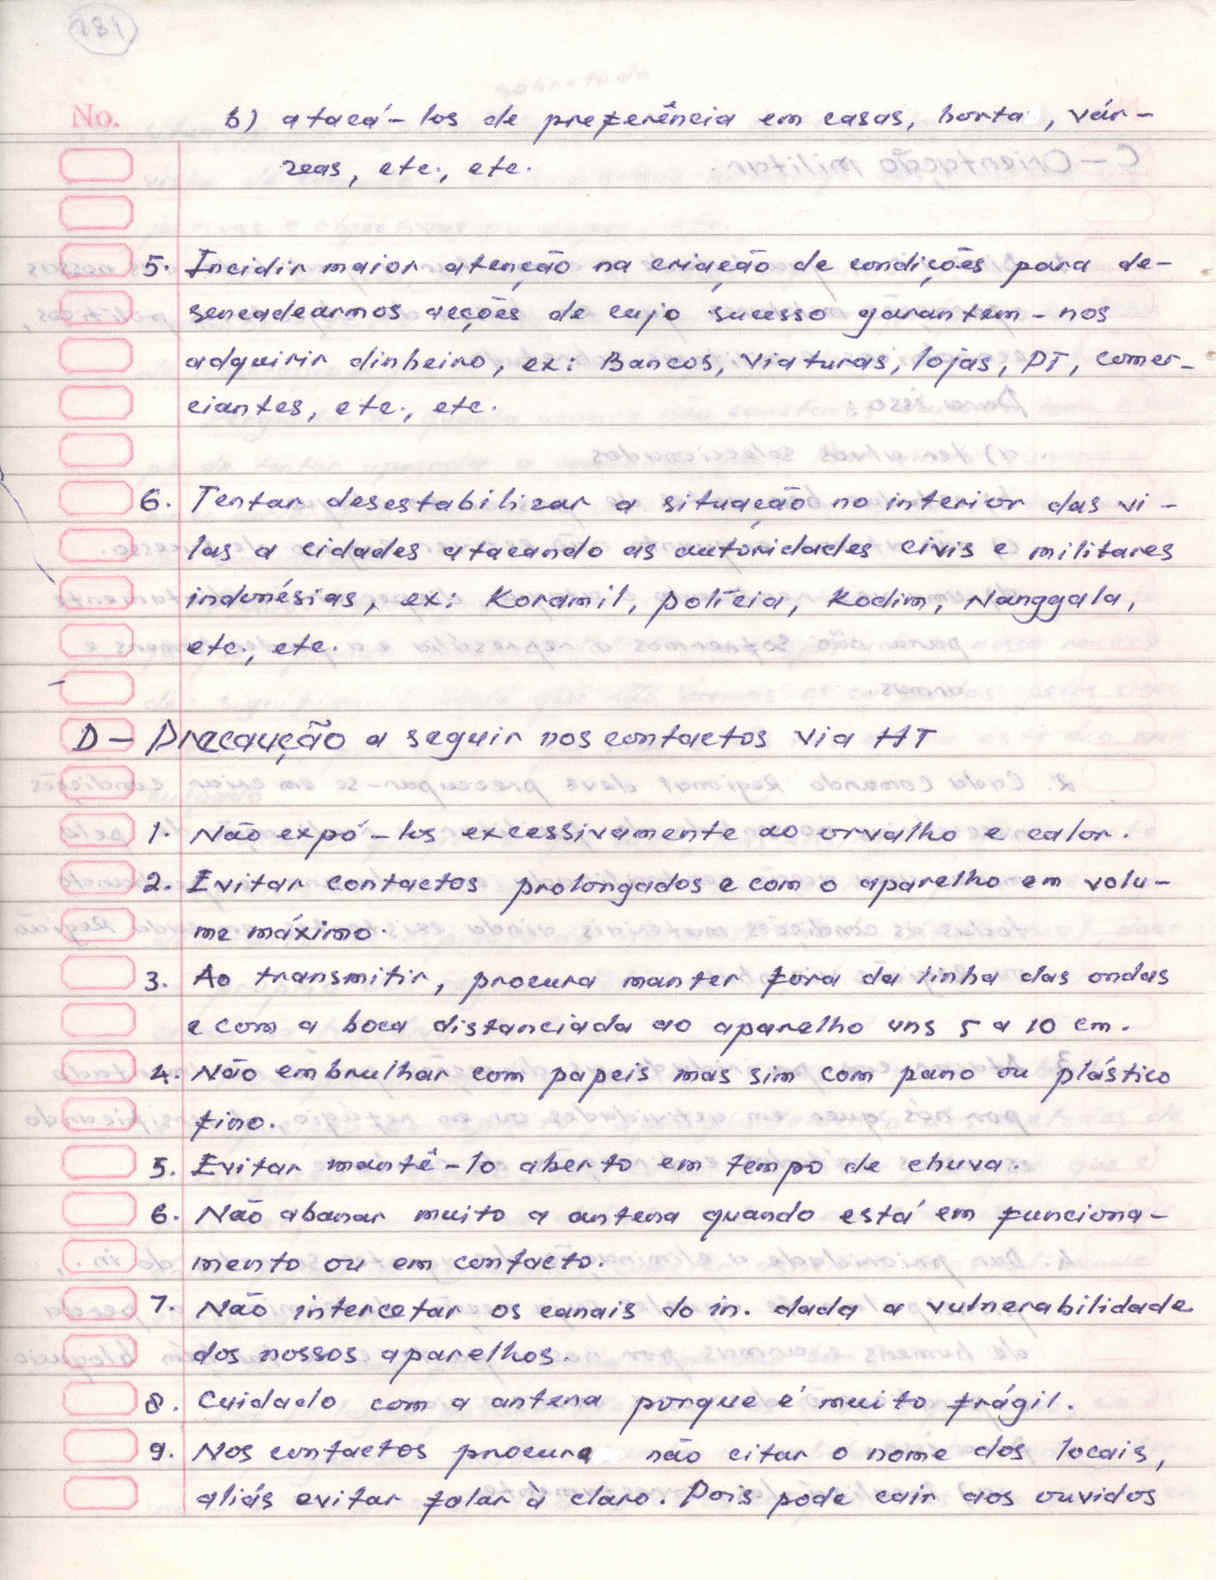 No.
b) atacá-los de preferência em casas, horta, vár-
zeas, etc., etc.
5. Incidir maior atenção na criação de condições para de-
sencadearmos acções de cujo sucesso garantem-nos
adquirir dinheiro, ex: Bancos, Viaturas, lojas, PT, comer-
ciantes, etc., etc.
6. Tentar desestabilizar a situação no interior das vi-
las a cidades atacando as autoridades civis e militares
indonésias, ex: Koramil, polícia, Kodim, Nanggala,
etc., etc.
D - Precaução a seguir nos contactos via HT
1. Não expô-los excessivamente ao orvalho e calor.
2. Evitar contactos prolongados e com o aparelho em volu-
me máximo.
3. Ao transmitir, procura manter fora da linha das ondas
e com a boca distanciada ao aparelho uns 5 a 10 cm.
4. Não embrulhar com papeis mas sim com pano ou plástico
fino.
5. Evitar mantê-lo aberto em tempo de chuva.
6. Não abanar muito a antena quando está em funciona-
mento ou em contacto.
7. Não intercetar os canais do in. dada a vulnerabilidade
dos nossos aparelhos.
8. Cuidado com a antena porque é muito frágil.
9. Nos contactos procura não citar o nome dos locais,
aliás evitar falar à claro. Pois pode cair aos ouvidos